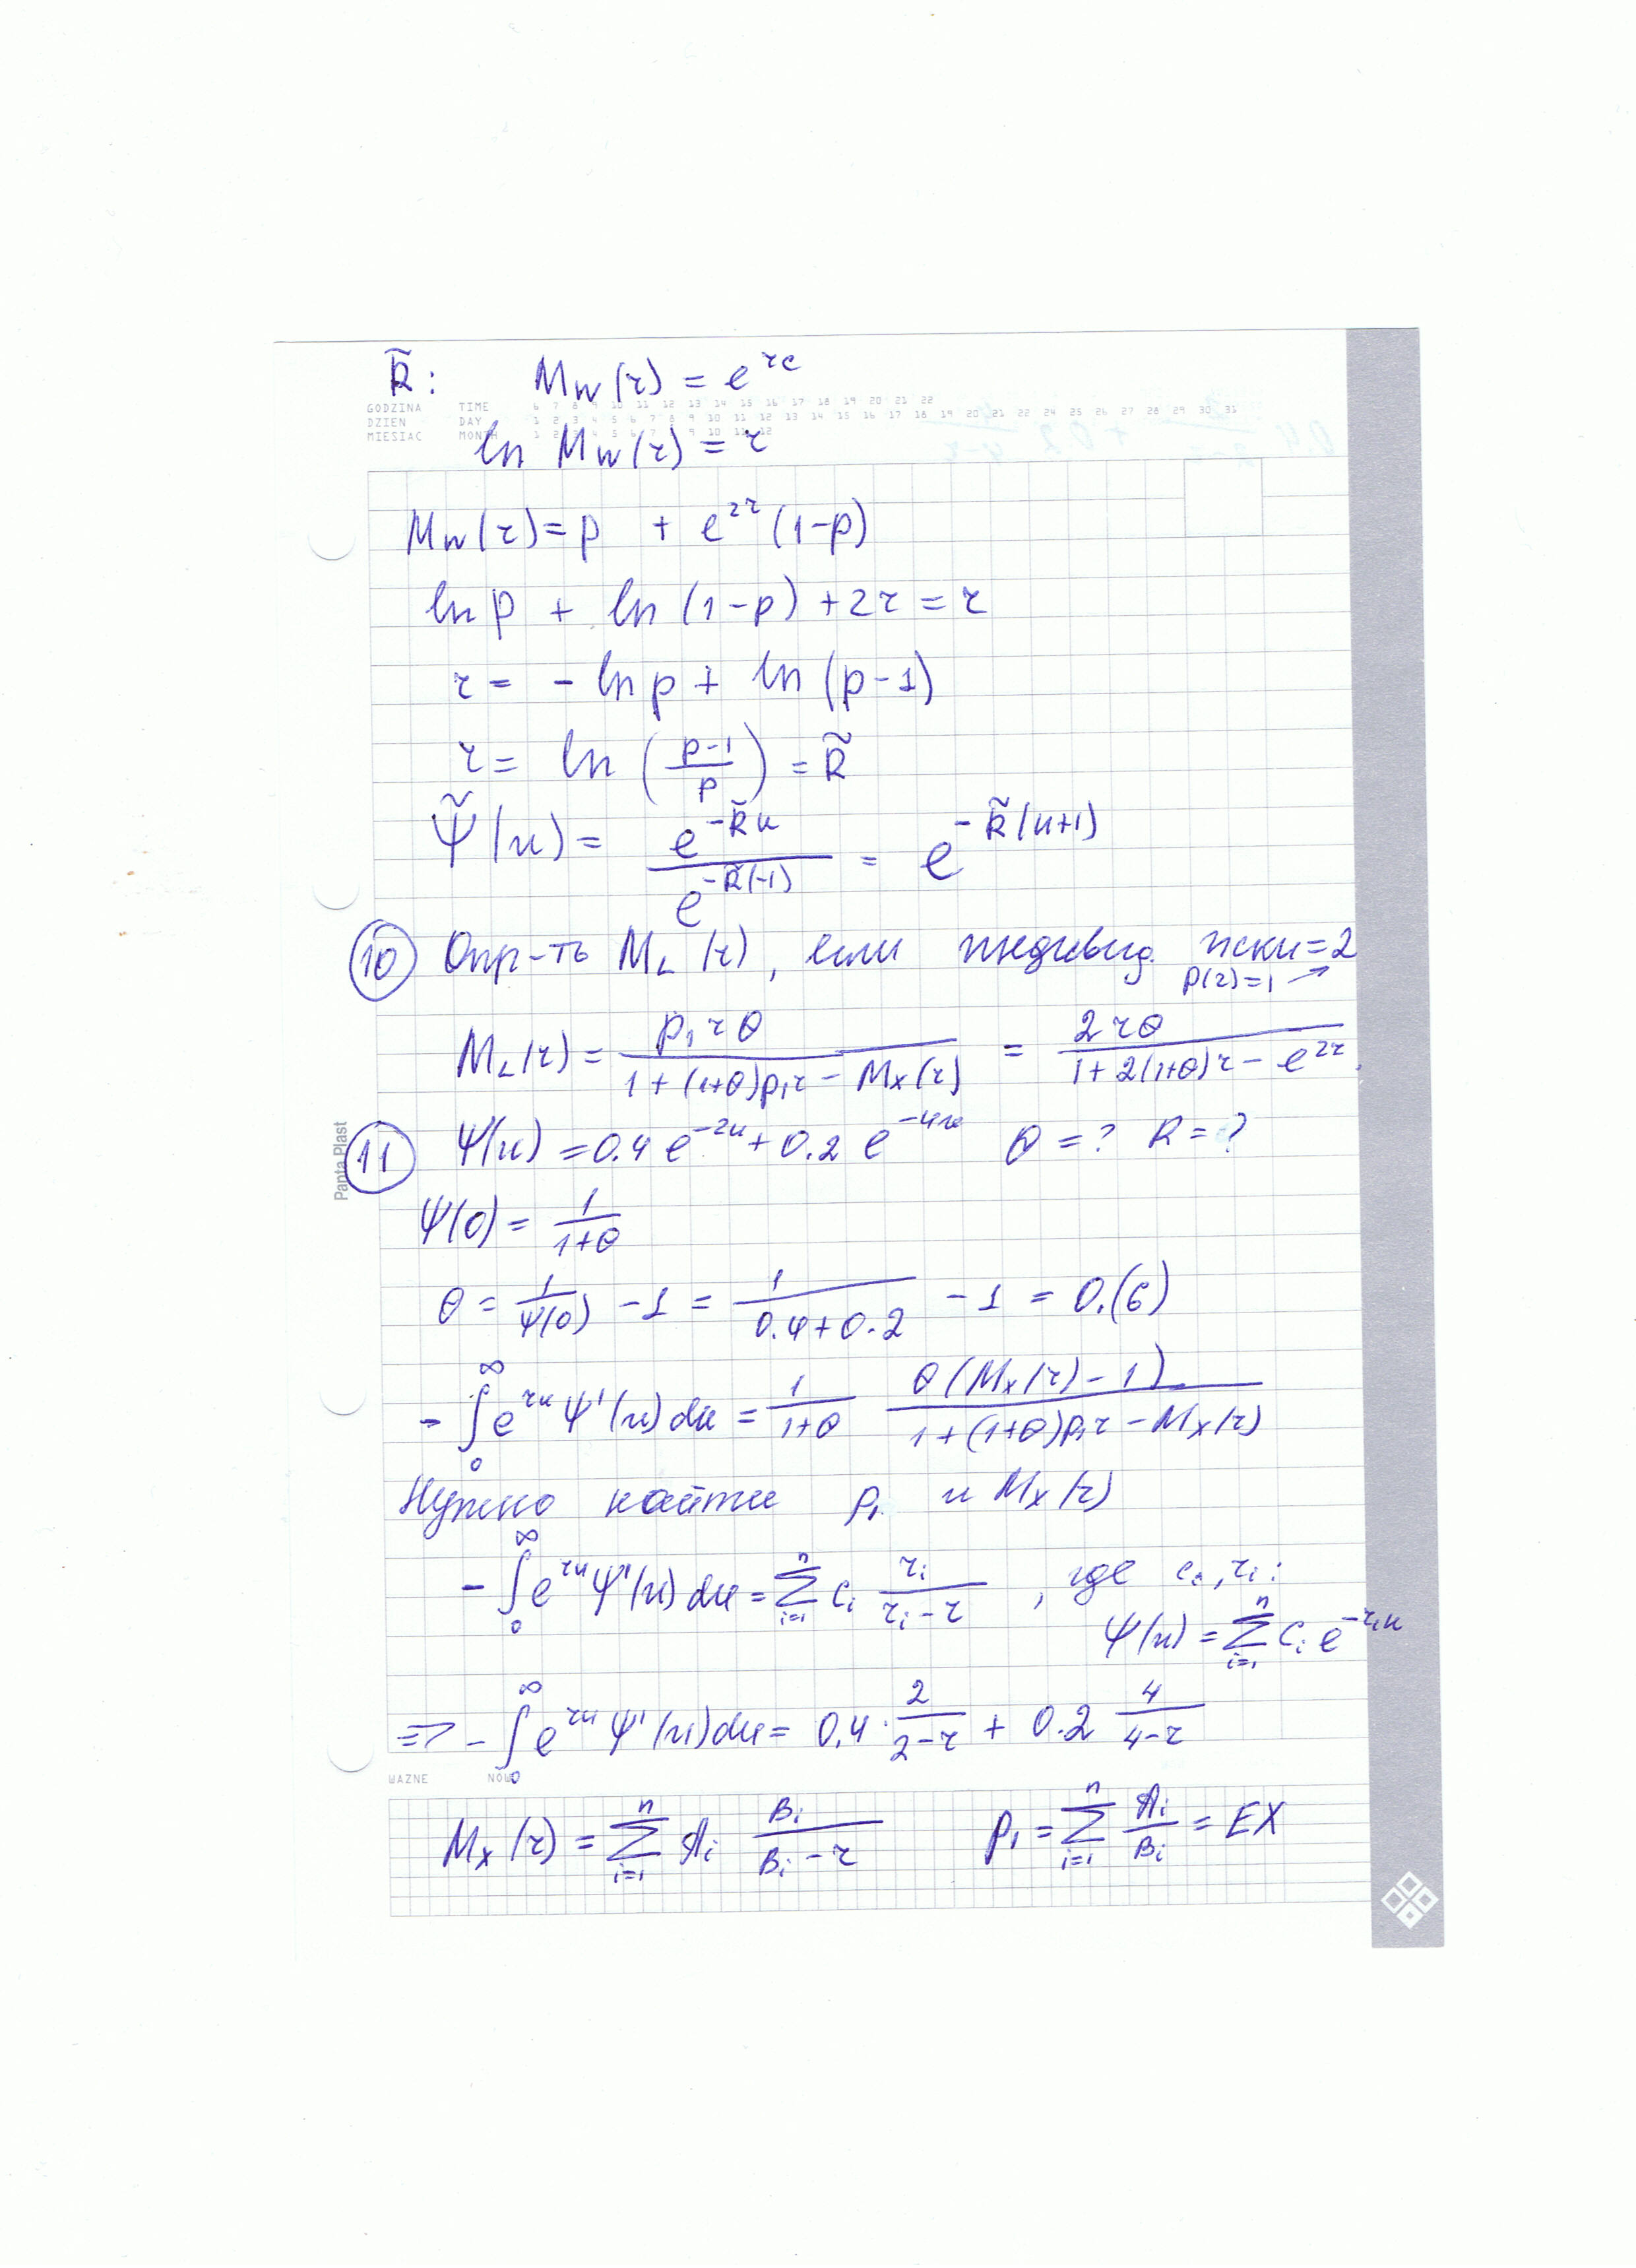 R̃: M_W(r) = e^{rc}
GODZINA TIME 6 7 8 9 10 11 12 13 14 15 16 17 18 19 20 21 22
DZIEN DAY 1 2 3 4 5 6 7 8 9 10 11 12 13 14 15 16 17 18 19 20 21 22 23 24 25 26 27 28 29 30 31
MIESIAC MONTH 1 2 3 4 5 6 7 8 9 10 11 12
ln M_W(r) = r
M_W(r) = p + e^{2r}(1-p)
ln p + ln (1-p) + 2r = r
r = - ln p + ln (p-1)
r = ln ((p-1)/p) = R̃
Ψ̃(u) = e^{-R̃u} / e^{-R̃(-1)} = e^{-R̃(u+1)}
⑩ Опр-ть M_L(r), если индивид. иски = 2
P(2)=1 →
M_L(r) = p₁rθ / (1+(1+θ)p₁r - M_X(r)) = 2rθ / (1+2(1+θ)r - e^{2r})
⑪ Ψ(u) = 0.4 e^{-2u} + 0.2 e^{-4u} θ = ? R = ?
Panta Plast
Ψ(0) = 1/(1+θ)
θ = 1/Ψ(0) - 1 = 1/(0.4+0.2) - 1 = 0.(6)
- ∫₀^∞ e^{ru} Ψ'(u) du = 1/(1+θ) θ(M_X(r) - 1) / (1+(1+θ)p₁r - M_X(r))
Нужно найти p₁ и M_X(r)
- ∫₀^∞ e^{ru} Ψ'(u) du = Σ_{i=1}^n c_i r_i/(r_i - r), где c_i, r_i:
Ψ(u) = Σ_{i=1}^n c_i e^{-r_i u}
=> - ∫₀^∞ e^{ru} Ψ'(u) du = 0.4 · 2/(2-r) + 0.2 4/(4-r)
WAZNE NOW
M_X(r) = Σ_{i=1}^n A_i B_i/(B_i - r) p₁ = Σ_{i=1}^n A_i/B_i = EX